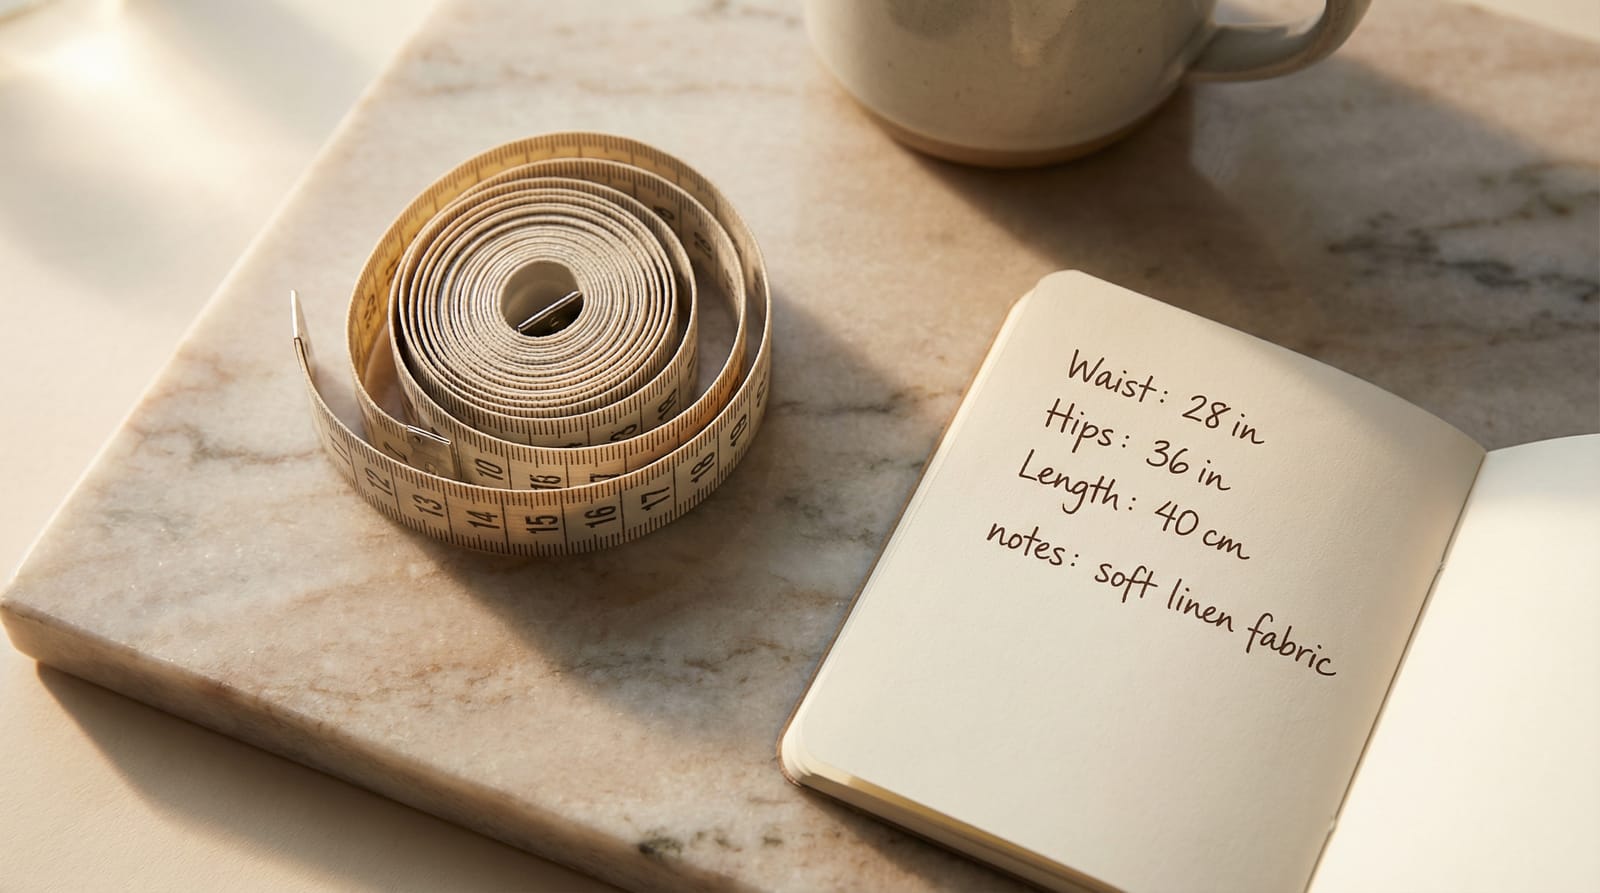 Waist: 28 in
Hips: 36 in
Length: 40 cm
notes: soft linen fabric
12 13 14 15 16 17 18 19
10